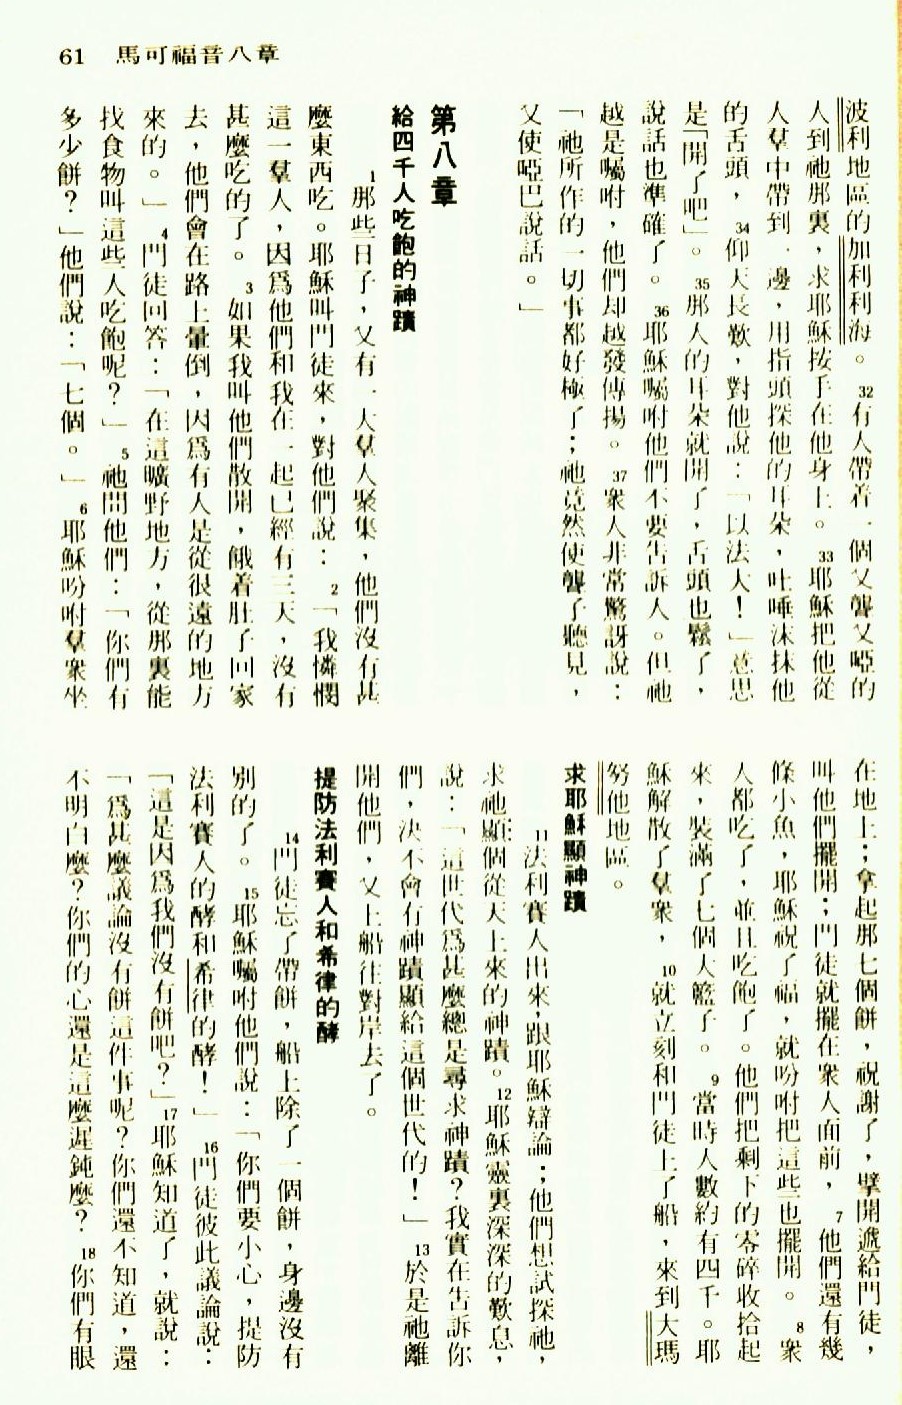 61 馬可福音八章
波利地區的加利利海。 32有人帶着一個又聾又啞的
人到祂那裏，求耶穌按手在他身上。 33耶穌把他從
人羣中帶到一邊，用指頭探他的耳朵，吐唾沫抹他
的舌頭， 34仰天長歎，對他說：「以法大！」意思
是「開了吧」。 35那人的耳朵就開了，舌頭也鬆了，
說話也準確了。 36耶穌囑咐他們不要告訴人。但祂
越是囑咐，他們却越發傳揚。 37衆人非常驚訝說：
「祂所作的一切事都好極了；祂竟然使聾子聽見，
又使啞巴說話。」
第八章
給四千人吃飽的神蹟
1那些日子，又有一大羣人聚集，他們沒有甚
麼東西吃。耶穌叫門徒來，對他們說： 2「我憐憫
這一羣人，因爲他們和我在一起已經有三天，沒有
甚麼吃的了。 3如果我叫他們散開，餓着肚子回家
去，他們會在路上暈倒，因爲有人是從很遠的地方
來的。」 4門徒回答：「在這曠野地方，從那裏能
找食物叫這些人吃飽呢？」 5祂問他們：「你們有
多少餅？」他們說：「七個。」 6耶穌吩咐羣衆坐
在地上；拿起那七個餅，祝謝了，擘開遞給門徒，
叫他們擺開；門徒就擺在衆人面前， 7他們還有幾
條小魚，耶穌祝了福，就吩咐把這些也擺開。 8衆
人都吃了，並且吃飽了。他們把剩下的零碎收拾起
來，裝滿了七個大籃子。 9當時人數約有四千。耶
穌解散了羣衆， 10就立刻和門徒上了船，來到大瑪
努他地區。
求耶穌顯神蹟
11法利賽人出來，跟耶穌辯論；他們想試探祂，
求祂顯個從天上來的神蹟。 12耶穌靈裏深深的歎息，
說：「這世代爲甚麼總是尋求神蹟？我實在告訴你
們，決不會有神蹟顯給這個世代的！」 13於是祂離
開他們，又上船往對岸去了。
提防法利賽人和希律的酵
14門徒忘了帶餅，船上除了一個餅，身邊沒有
別的了。 15耶穌囑咐他們說：「你們要小心，提防
法利賽人的酵和希律的酵！」 16門徒彼此議論說：
「這是因爲我們沒有餅吧？」 17耶穌知道了，就說：
「爲甚麼議論沒有餅這件事呢？你們還不知道，還
不明白麼？你們的心還是這麼遲鈍麼？ 18你們有眼